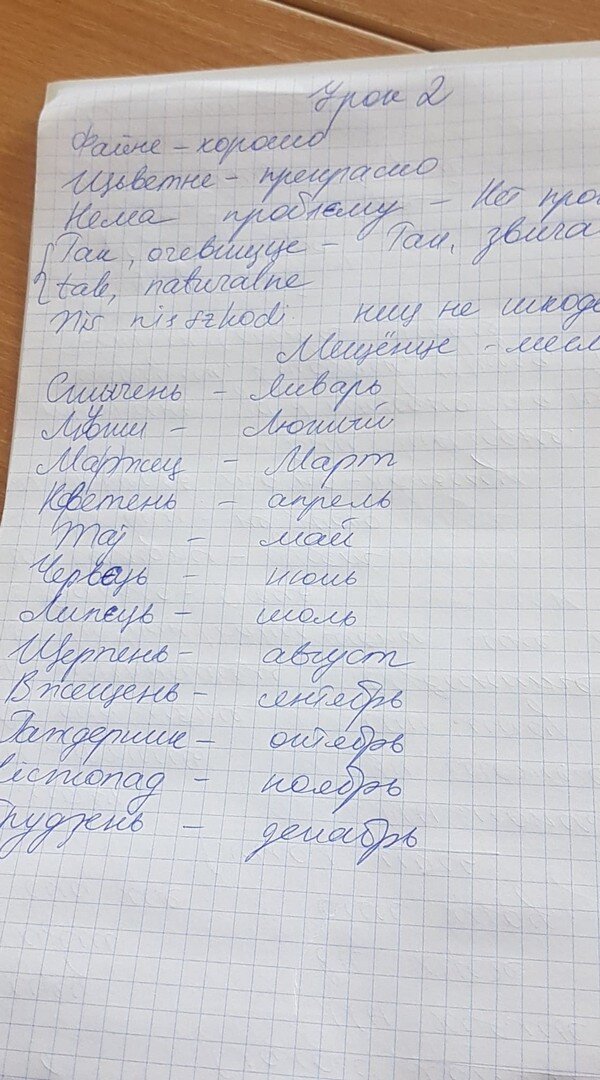 Урок 2
Файне – хорошо
Щьветне – прекрасно
Нема проблєму – Нет про
Так, очевищце – Так, звича
tak, naturalne
Nis nis szkodi ниц не шкоде
Мищёнце – меся
Стычень – Январь
Люты – Лютий
Мартец – Март
Кветень – апрель
Maj – май
Червець – июнь
Липець – июль
Щерпень – август
Вжещень – сентябрь
Паждерник – октябрь
істопад – ноябрь
рудзень – декабрь